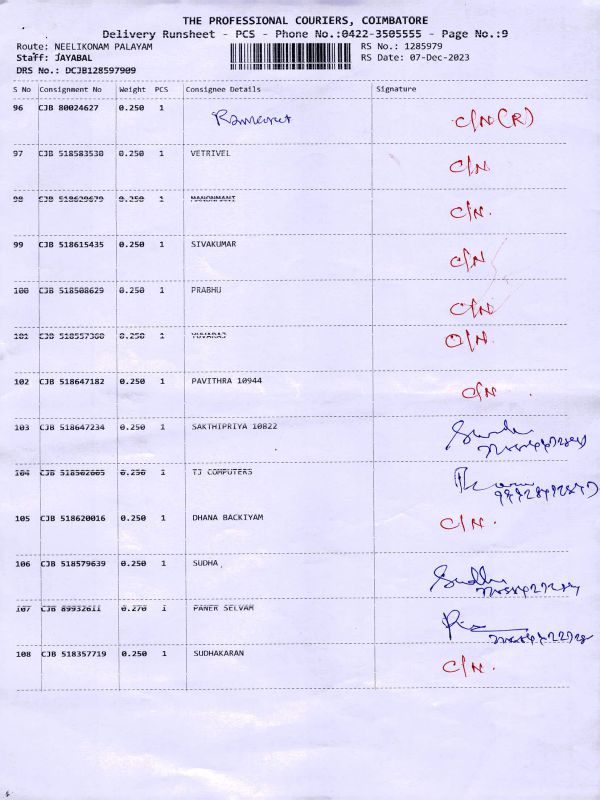 THE PROFESSIONAL COURIERS, COIMBATORE
Delivery Runsheet - PCS - Phone No.:0422-3505555 - Page No.:9
Route: NEELIKONAM PALAYAM RS No.: 1285979
Staff: JAYABAL RS Date: 07-Dec-2023
DRS No.: DCJB128597909
S No Consignment No Weight PCS Consignee Details Signature
96 CJB 80024627 0.250 1 C/N (R)
97 CJB 518583530 0.250 1 VETRIVEL C/N
98 CJB 518629679 0.250 1 MANONMANI C/N.
99 CJB 518615435 0.250 1 SIVAKUMAR C/N
100 CJB 518508629 0.250 1 PRABHU C/N
101 CJB 518557360 0.250 1 YUVARAJ O/N.
102 CJB 518647182 0.250 1 PAVITHRA 10944 C/N.
103 CJB 518647234 0.250 1 SAKTHIPRIYA 10822
104 CJB 518502665 0.250 1 TJ COMPUTERS
105 CJB 518620016 0.250 1 DHANA BACKIYAM C/N.
106 CJB 518579639 0.250 1 SUDHA Sudha
107 CJB 89932611 0.270 1 PANER SELVAM
108 CJB 518357719 0.250 1 SUDHAKARAN C/N.